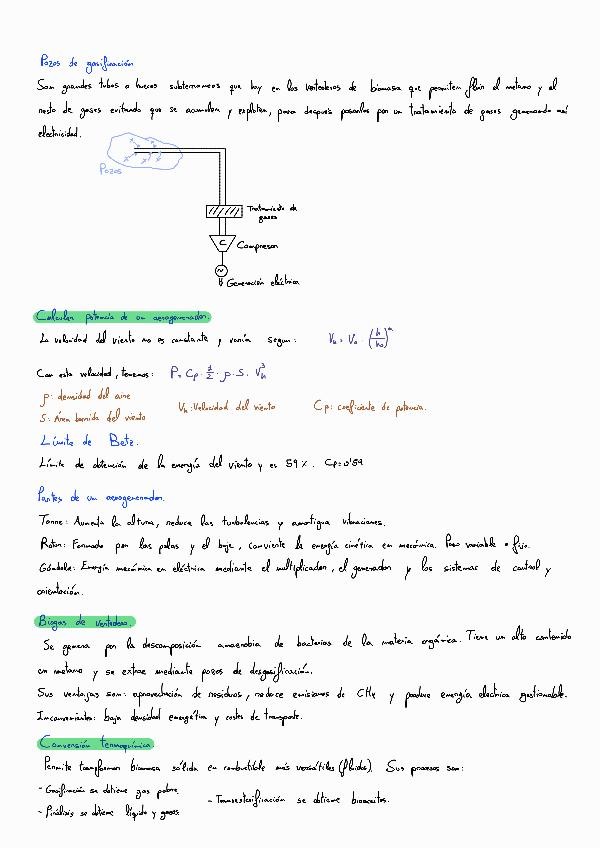 Pozos de gasificación
Son grandes tubos o huecos subterraneos que hay en los vertederos de biomasa que permiten fluir el metano y el
resto de gases evitando que se acumulen y exploten, para después pasarlos por un tratamiento de gases generando así
electricidad.
Pozos
Tratamiento de
gases
C Compresor
~
Generación eléctrica
Calcular potencia de un aerogenerador
La velocidad del viento no es constante y varía segun: Vh = Vo · (h/ho)^α
Con esta velocidad, tenemos: P = Cp · 1/2 · ρ · S · Vh³
ρ: densidad del aire
Vh: Velocidad del viento Cp: coeficiente de potencia.
S: Área barrida del viento
Límite de Betz.
Límite de obtención de la energía del viento y es 59 %. Cp=0'59
Partes de un aerogenerador.
Torre: Aumenta la altura, reduce las turbulencias y amortigua vibraciones.
Rotor: Formado por las palas y el buje, convierte la energía cinética en mecánica. Paso variable o fijo.
Góndola: Energía mecánica en eléctrica mediante el multiplicador, el generador y los sistemas de control y
orientación.
Biogas de vertedero.
Se genera por la descomposición anaerobia de bacterias de la materia orgánica. Tiene un alto contenido
en metano y se extrae mediante pozos de desgasificación.
Sus ventajas son: aprovechación de residuos, reduce emisiones de CH4 y produce energía electrica gestionable.
Inconvenientes: baja densidad energética y costes de transporte.
Conversión termoquímica.
Permite transformar biomasa sólida en combustible más versátiles (fluidos). Sus procesos son:
- Gasificación se obtiene gas pobre.
- Transesterificación se obtiene bioaceites.
- Pirólisis se obtiene líquido y gases.